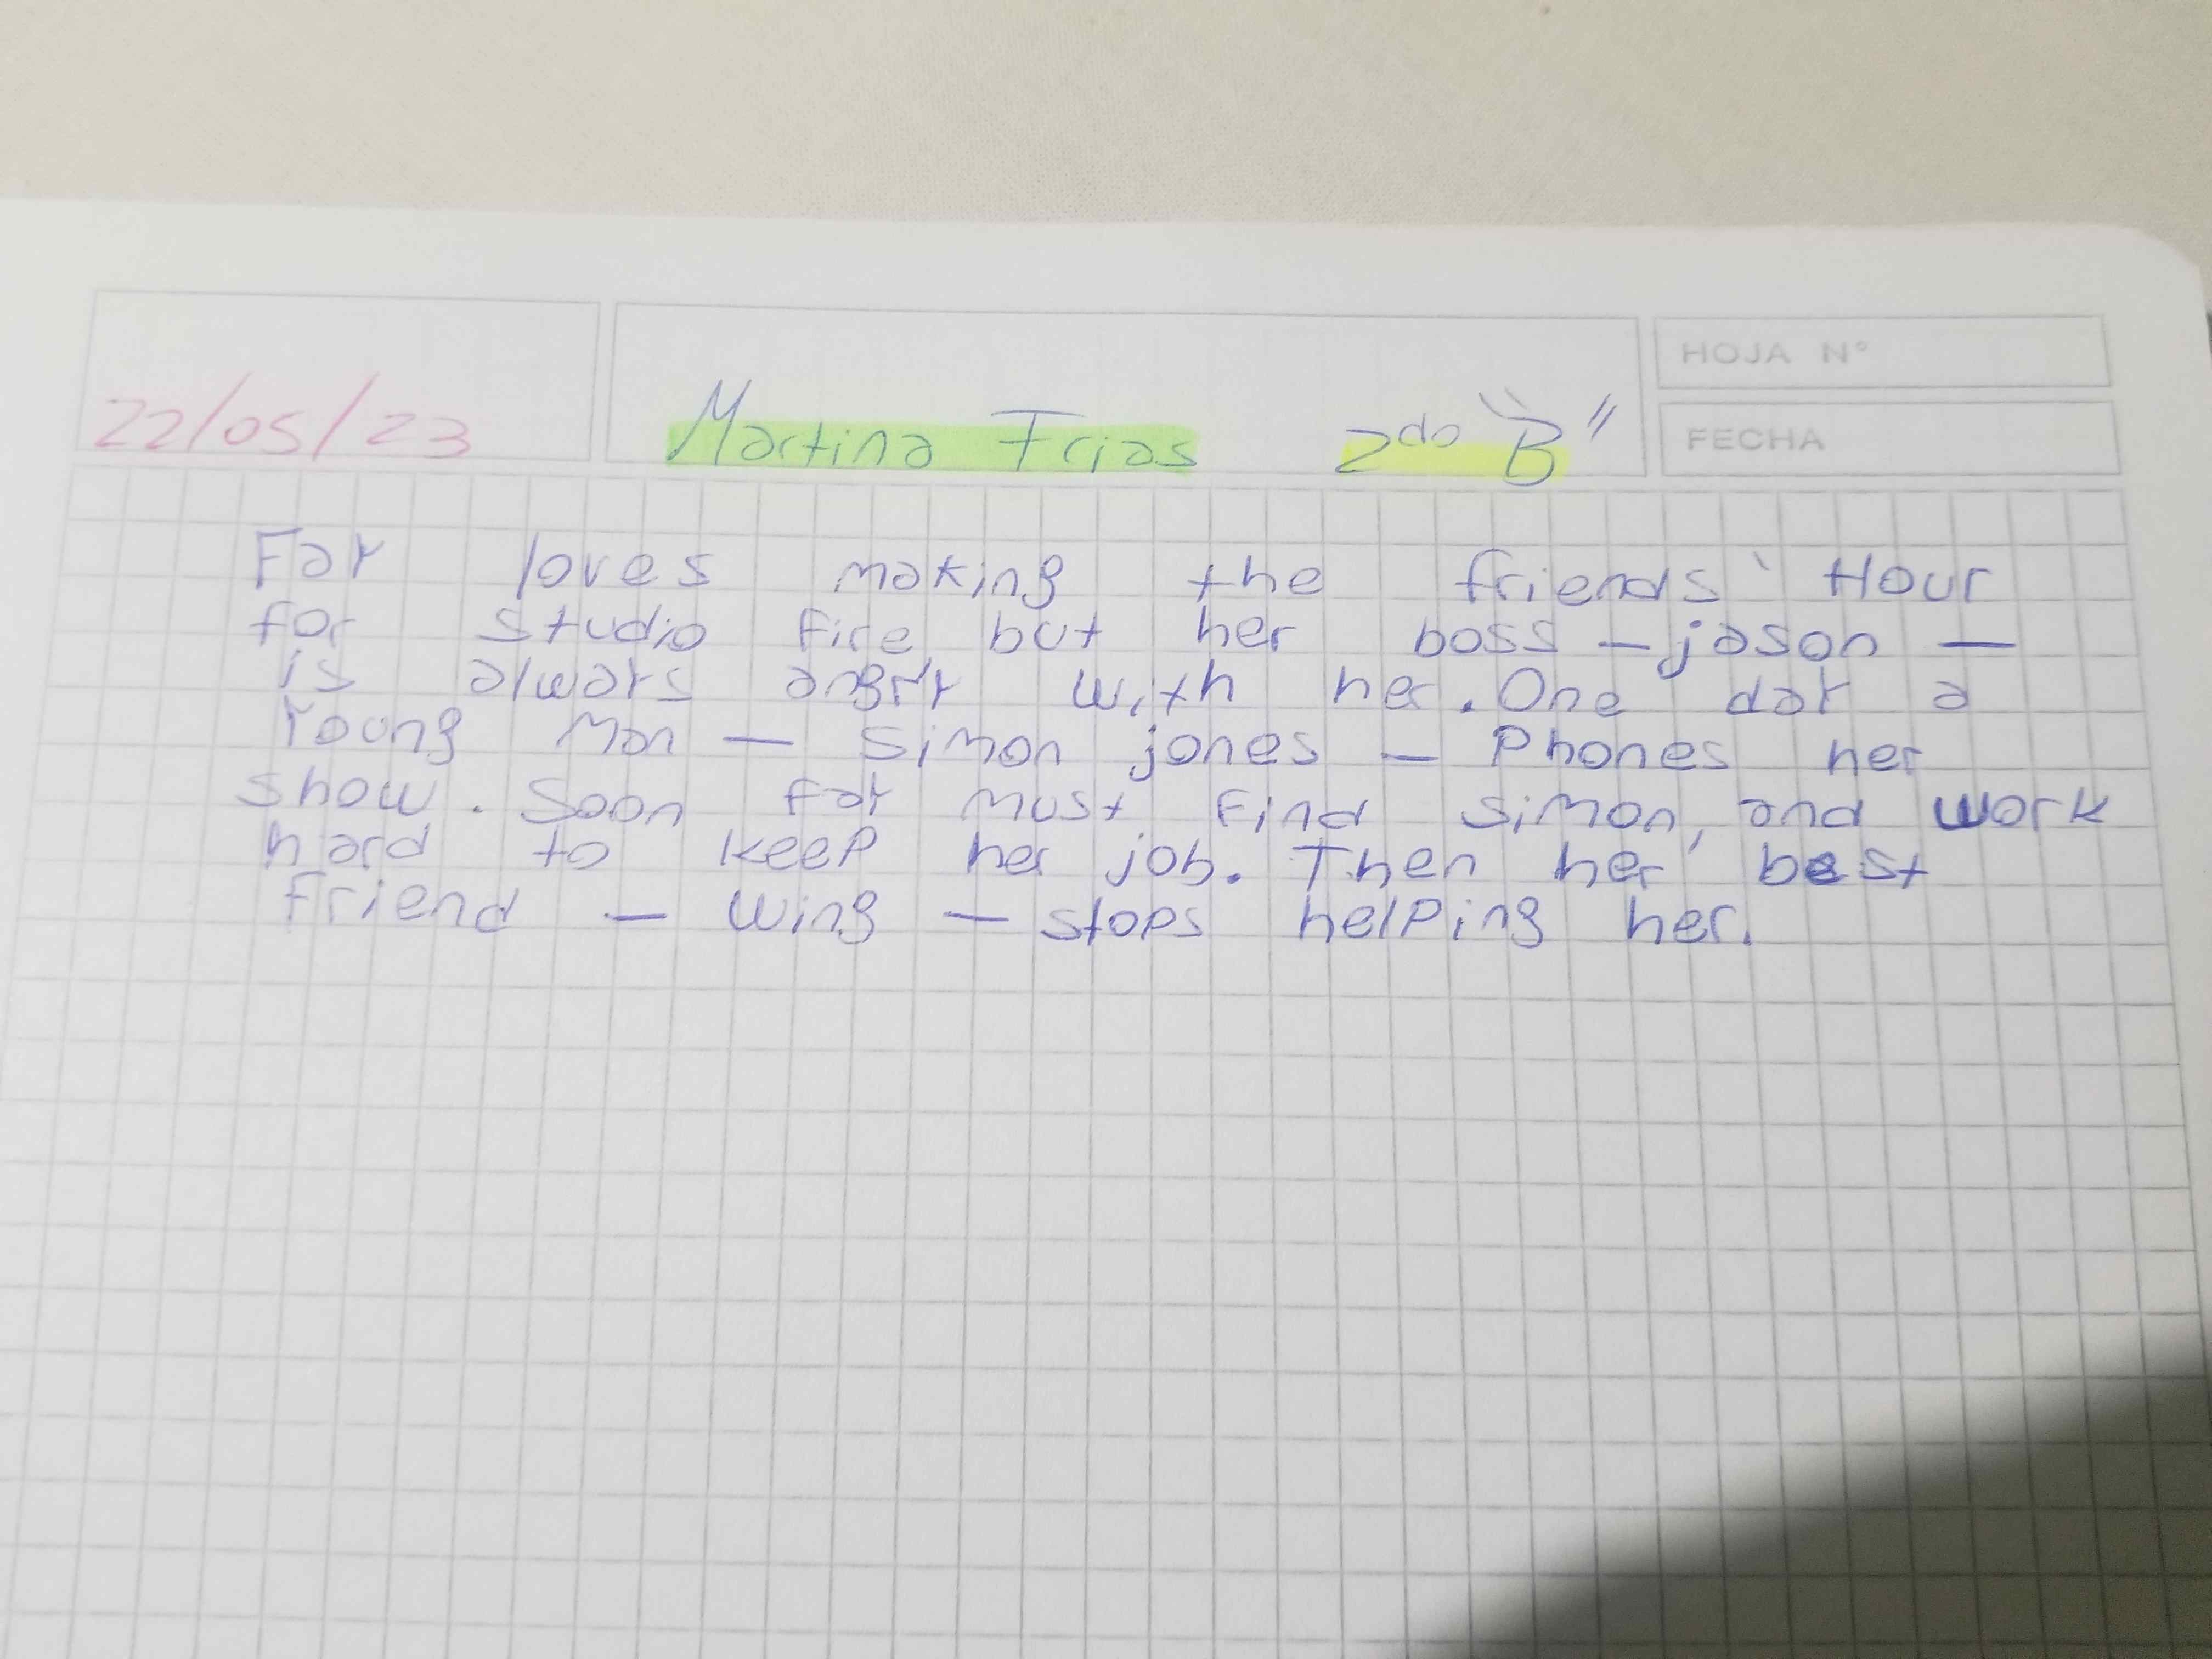 HOJA N°
22/05/23 Martina Frias 2do "B"
FECHA
Fay loves making the friends' Hour
for studio fire, but her boss — jason —
is always angry with her. One day a
Young Man — Simon jones — Phones her
show. Soon fay must find simon, and work
hard to keep her job. Then her best
friend — wing — stops helping her.